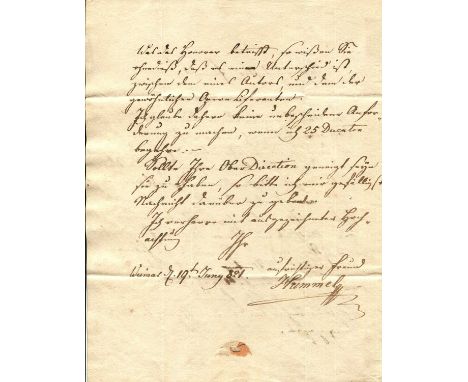 Was das Honorar betrifft, so wißen Sie
ohnedieß, daß es einen Unterschied ist
zwischen dem eines Autors, und dem der
gewöhnlichen Opern Lieferanten.
Ich glaube daher keine unbescheidene Anfor-
derung zu machen, wenn ich 25 Ducaten
begehre. –
Sollte Ihre Ober Direction geneigt seyn
sie zu haben, so bitte ich mir gefällig
Nachricht darüber zu geben.
Ich verharre mit ausgezeichneter Hoch-
achtung
Ihr
aufrichtiger Freund
Weimar d. 19t Juny 821.
Hummel